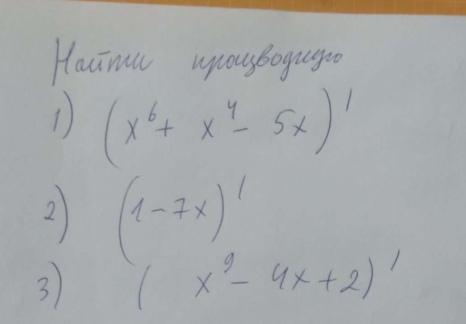 Найти процводную
1) (x⁶ + x⁴ - 5x)'
2) (1 - 7x)'
3) (x⁹ - 4x + 2)'